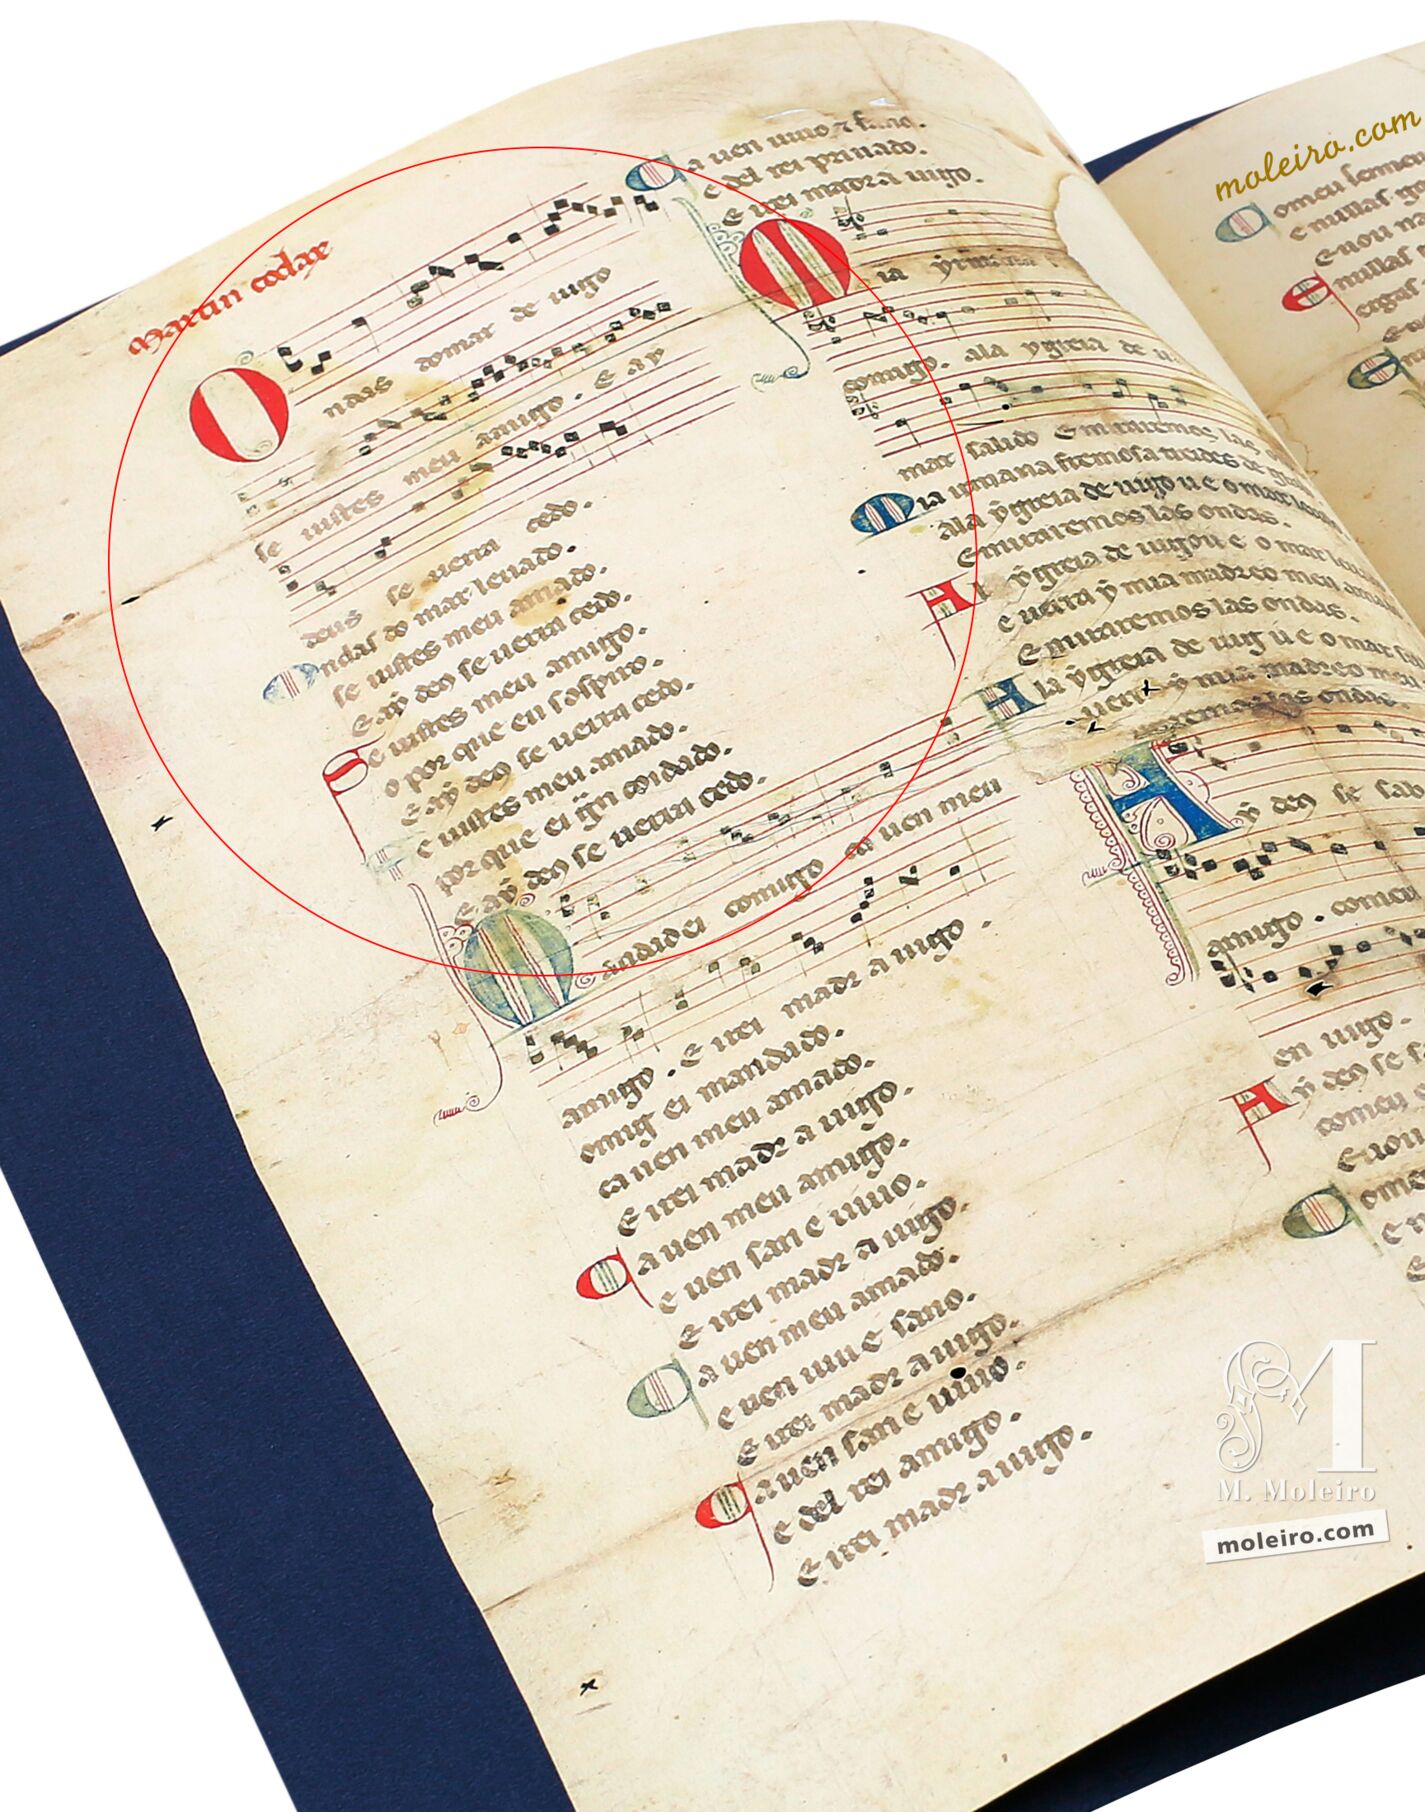 Martin codax
Ondas do mar de uigo
se uistes meu amigo. E ay
deus se uerra cedo.
Ondas do mar leuado.
se uistes meu amado.
E aỹ deo se uerra cedo.
Se uistes meu amigo.
o por que eu sospiro.
E aỹ deo se uerra cedo.
Se uistes meu amado.
por que ei g̃n coidado.
E aỹ deo se uerra cedo.
Mandad ei comigo ca uen meu
amigo. E irei madr a uigo.
omig ei mandado.
ca uen meu amado.
E irei madr a uigo.
Ca uen meu amigo.
e uen san e uiuo.
E irei madr a uigo.
Ca uen meu amado.
e uen uiu e sano.
E irei madr a uigo.
Ca uen san e uiuo.
e del rei amigo.
E irei madr a uigo.
Ca uen uiuo ⁊ sano.
e del rei priuado.
E irei madr a uigo.
Mia ỹrmana
comigo. ala ygreia de
mar salido E miraremos las
Mia irmana fremosa treides de
ala ỹgreia de uigo u e o mar
E miraremos las ondas.
A l ỹgreia de uigo u e o mar
e uerra ỹ mia madre o meu
E miraremos las ondas.
A la ỹgreia de uig u e o mar
uerra ỹ mia madre o meu
miraremos las ondas
Aỹ deo se sab
amigo. comeu
en uigo.
Aỹ deo se sa
comeu
E uou
ome
moleiro.com
Comeu semne
e nullas g
E uou
E nullas
M
M. Moleiro
moleiro.com